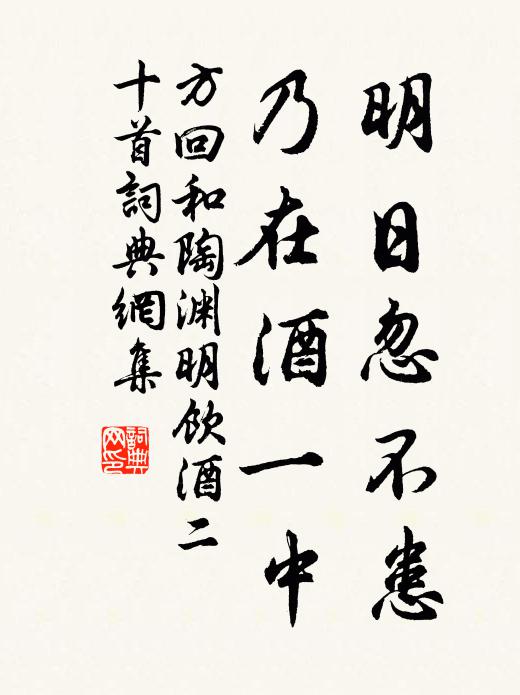 明日忽不患
乃在酒一中
方回和陶渊明饮酒二
十首詞典網集
詞典
网印